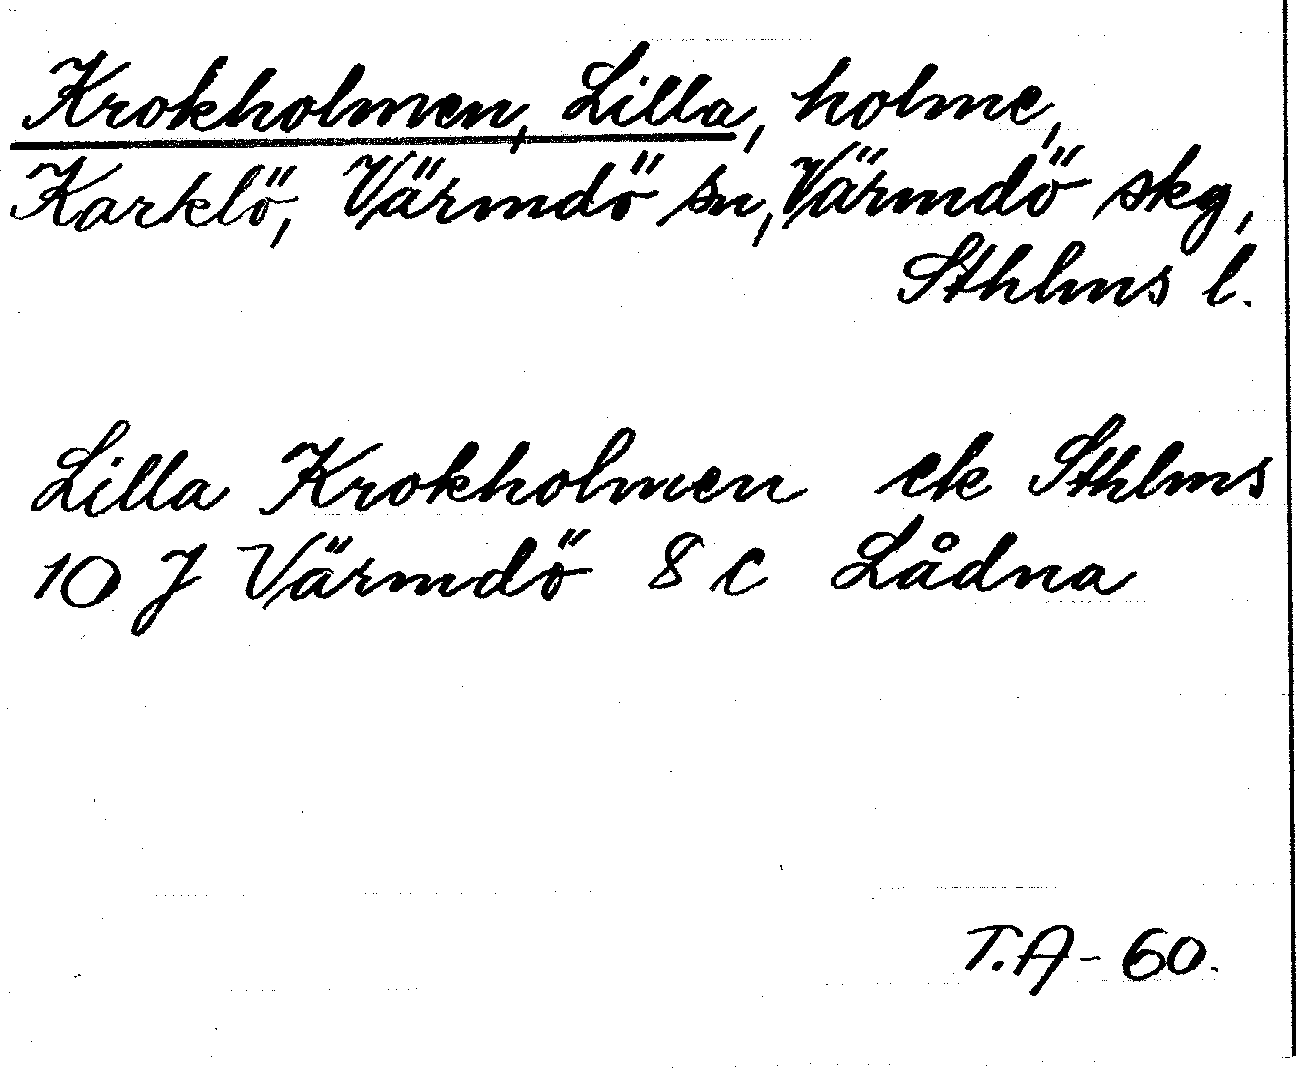 Krokholmen, Lilla, holme,
Karklö, Värmdö sn, Värmdö skg,
Sthlms l.
Lilla Krokholmen ek Sthlms
10 J Värmdö 8 c Lådna
T.A-60.